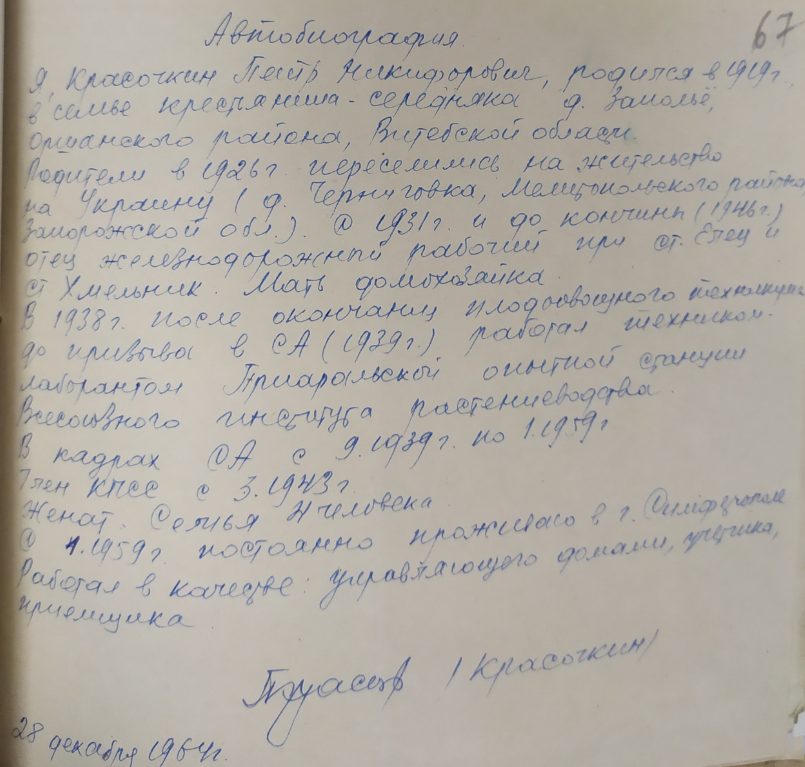 67
Автобиография.
Я, Красочкин Петр Никифорович, родился в 1919г.,
в семье крестьянина-середняка д. Заполье,
Оршанского района, Витебской области.
Родители в 1926г переселились на жительство
на Украину (д. Черниговка, Мелитопольского района
Запорожской обл.). С 1931г. и до кончины (1946г.)
отец железнодорожный рабочий при ст. и
ст Хмельник. Мать домохозяйка.
В 1938г. после окончания плодоовощного техникума
до призыва в СА (1939г.) работал техником-
лаборантом Приаральской опытной станции
Всесоюзного института растениеводства.
В кадрах СА с 9.1939г. по 1.1959г
Член КПСС с 3.1943г.
Женат. Семья 4 человека
С 1.1959г. постоянно проживаю в г. Симферополе
Работал в качестве: управляющего домами, учетчика,
приемщика
/Красочкин/
28 декабря 1964г.